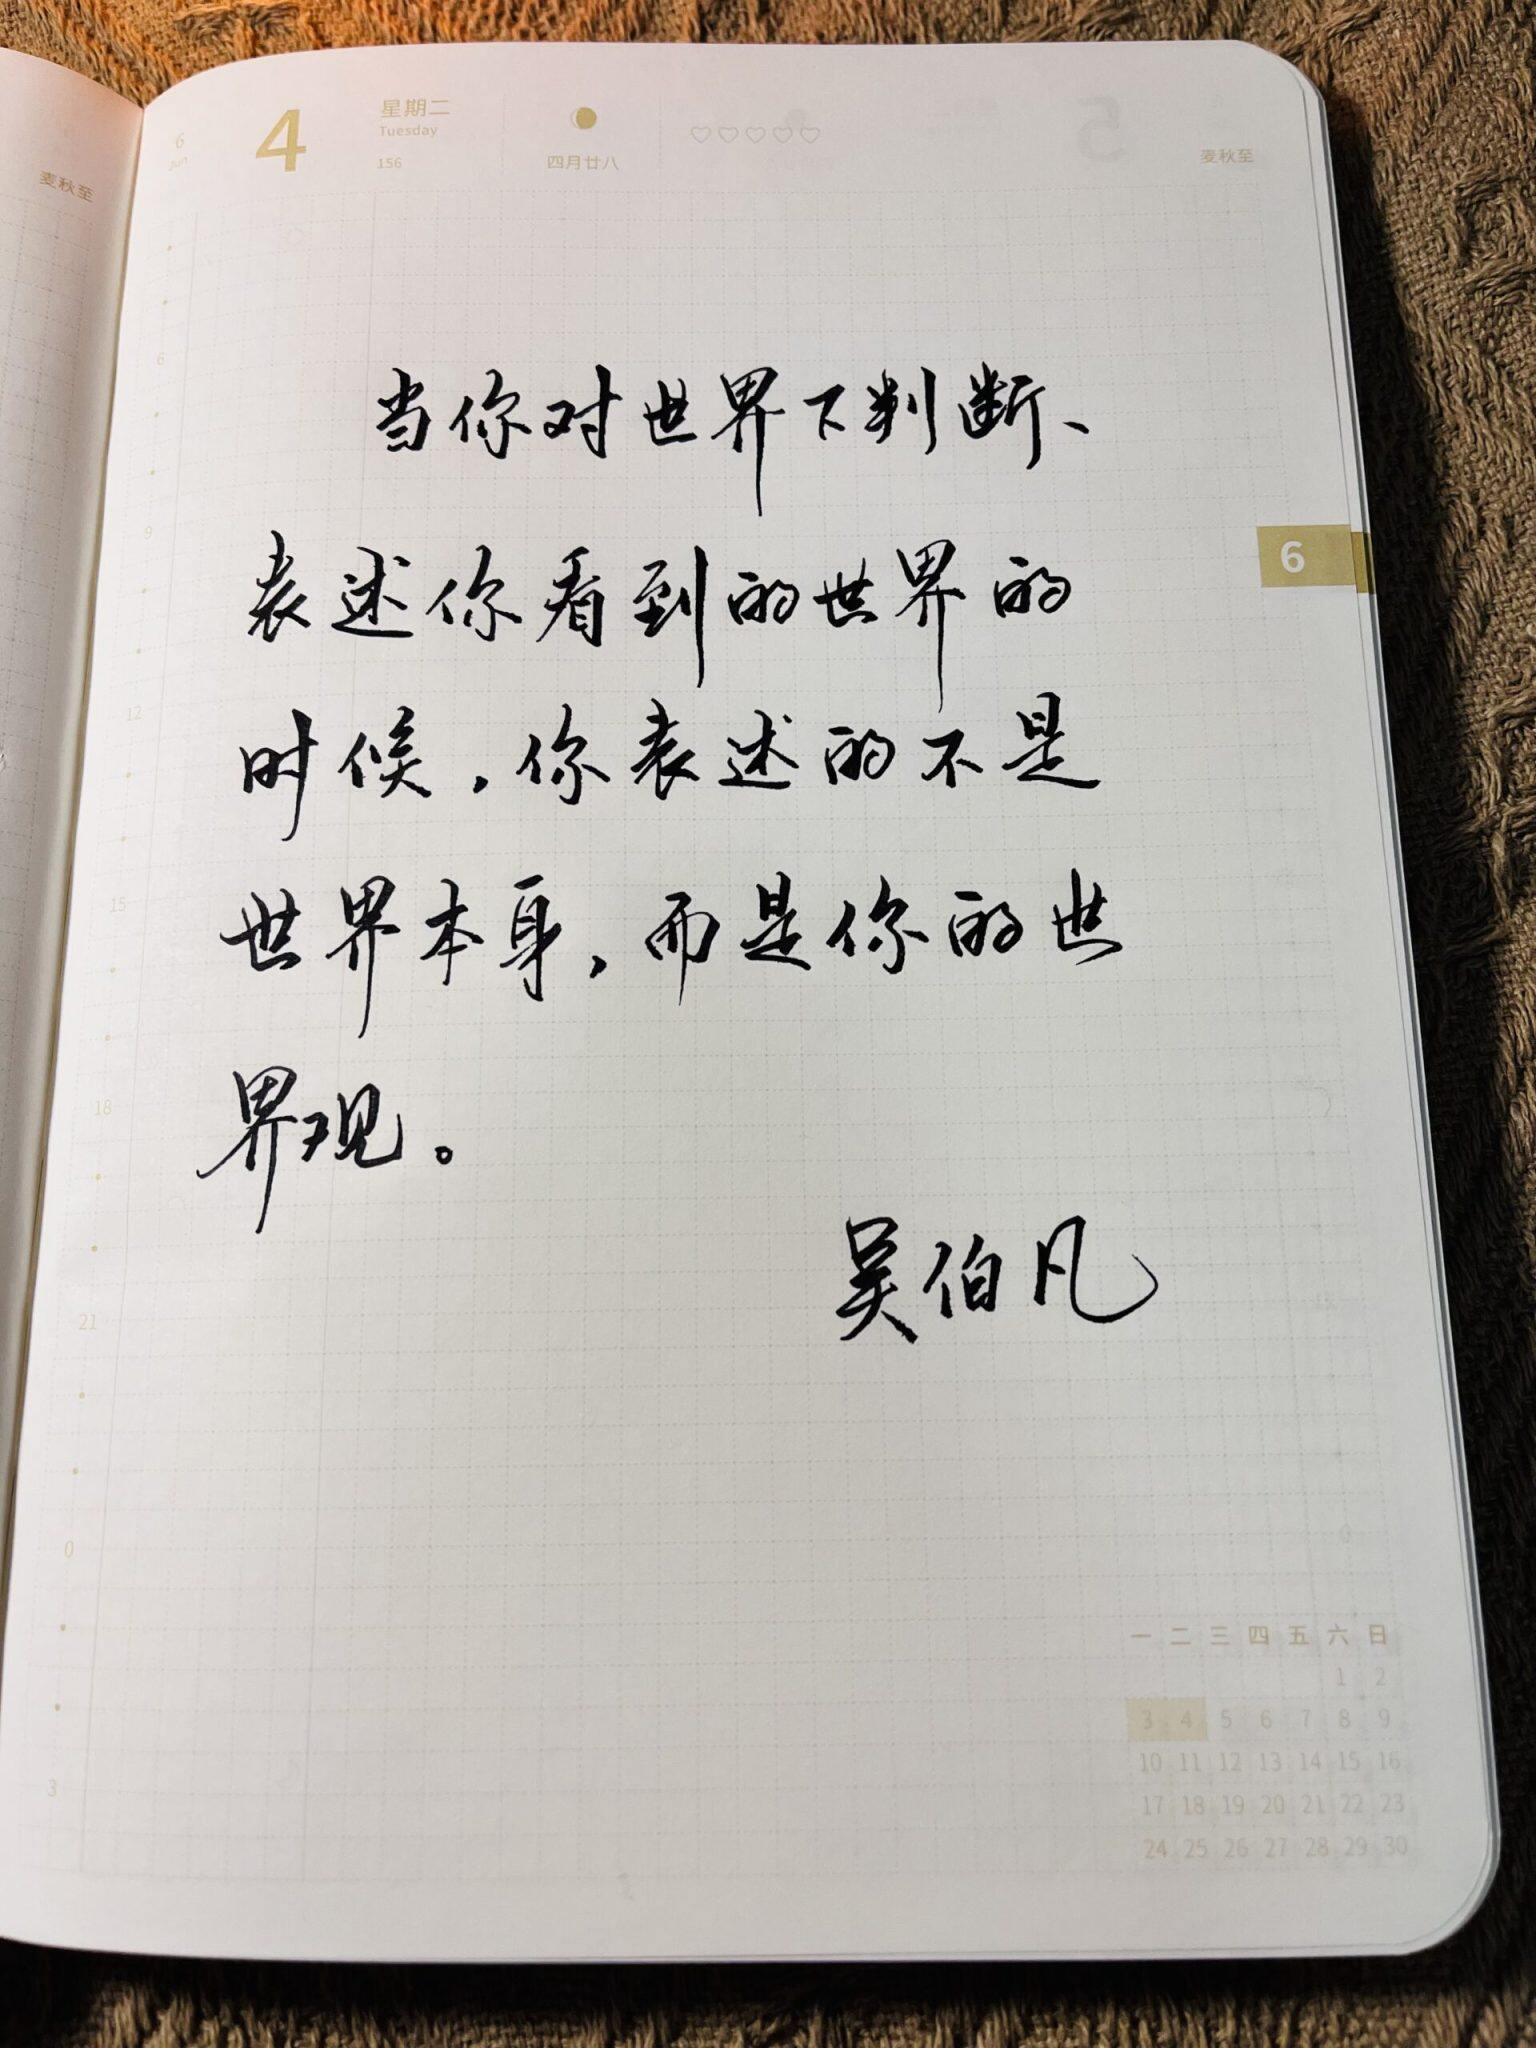 麦秋至
6
Jun
4
星期二
Tuesday
156
四月廿八
麦秋至
当你对世界下判断、
表述你看到的世界的
时候，你表述的不是
世界本身，而是你的世
界观。
吴伯凡
6
6
9
12
15
18
21
0
3
一 二 三 四 五 六 日
1 2
3 4 5 6 7 8 9
10 11 12 13 14 15 16
17 18 19 20 21 22 23
24 25 26 27 28 29 30